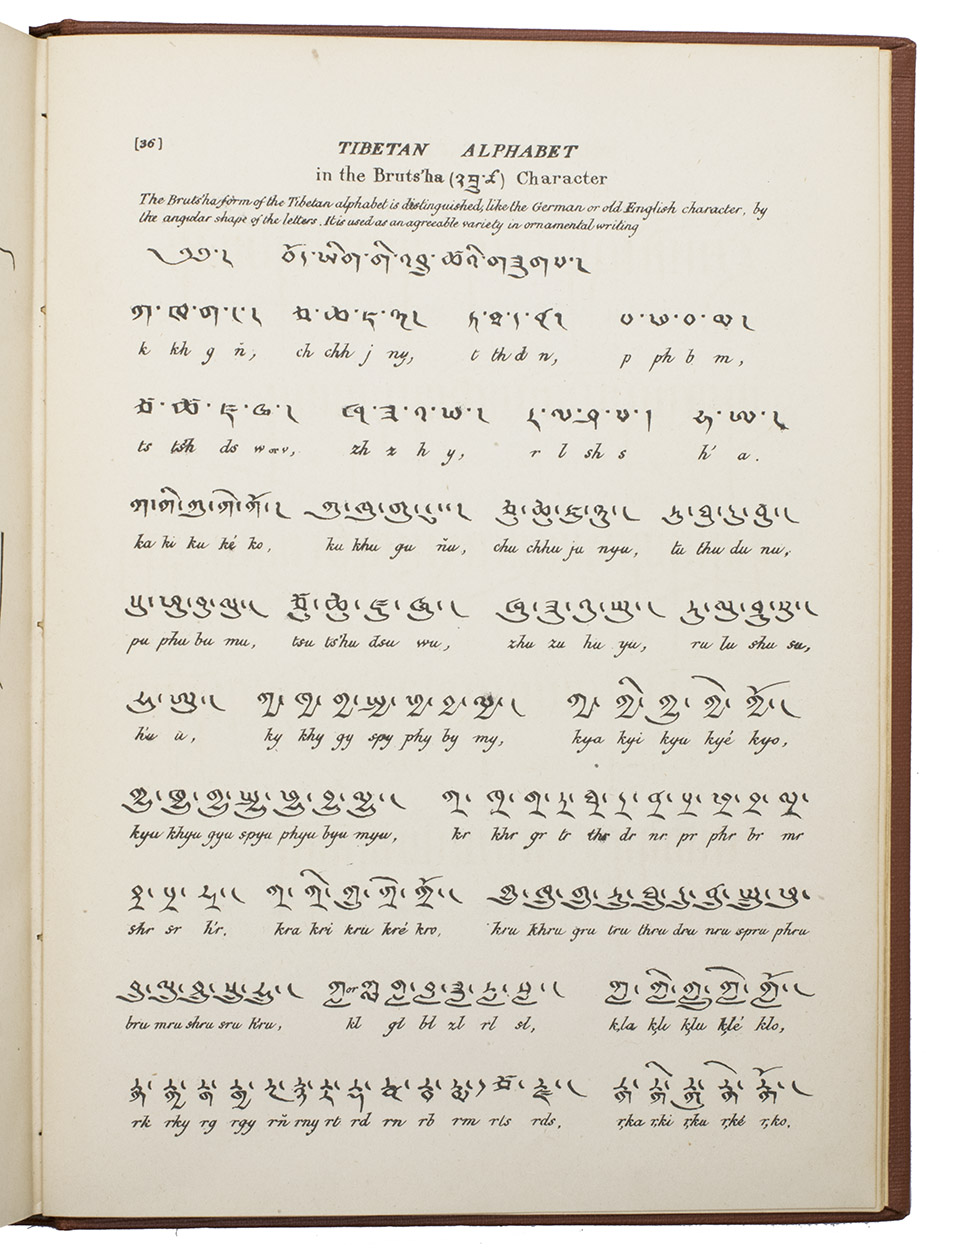 [36]
TIBETAN ALPHABET
in the Bruts'ha (འབྲུ་ཚ) Character
The Bruts'ha form of the Tibetan alphabet is distinguished, like the German or old English character, by
the angular shape of the letters. It is used as an agreeable variety in ornamental writing
༄༅། བོད་ཡིག་གི་འབྲུ་ཚའི་གཟུགས།
ཀ་ཁ་ག་ང་། ཅ་ཆ་ཇ་ཉ། ཏ་ཐ་ད་ན། པ་ཕ་བ་མ།
k kh g ñ, ch chh j ny, t th d n, p ph b m,
ཙ་ཚ་ཛ་ཝ་། ཞ་ཟ་འ་ཡ་། ར་ལ་ཤ་ས་། ཧ་ཨ་།
ts ts'h ds w or v, zh z h y, r l sh s h' a.
ཀ་ཀི་ཀུ་ཀེ་ཀོ། ཀུ་ཁུ་གུ་ངུ་། ཅུ་ཆུ་ཇུ་ཉུ་། ཏུ་ཐུ་དུ་ནུ་།
ka ki ku ké ko, ku khu gu ñu, chu chhu ju nyu, tu thu du nu,
པུ་ཕུ་བུ་མུ་། ཙུ་ཚུ་ཛུ་ཝུ་། ཞུ་ཟུ་འུ་ཡུ་། རུ་ལུ་ཤུ་སུ་།
pu phu bu mu, tsu ts'hu dsu wu, zhu zu hu yu, ru lu shu su,
ཧུ་ཨུ་། ཀྱ་ཁྱ་གྱ་སྤྱ་ཕྱ་བྱ་མྱ་། ཀྱ་ཀྱི་ཀྱུ་ཀྱེ་ཀྱོ་།
h'u u, ky khy gy spy phy by my, kya kyi kyu kyé kyo,
ཀྱུ་ཁྱུ་གྱུ་སྤྱུ་ཕྱུ་བྱུ་མྱུ་། ཀྲ་ཁྲ་གྲ་ཏྲ་ཐྲ་དྲ་ནྲ་པྲ་ཕྲ་བྲ་མྲ་
kyu khyu gyu spyu phyu byu myu, kr khr gr tr thr dr nr pr phr br mr
ཤྲ་སྲ་ཧྲ་། ཀྲ་ཀྲི་ཀྲུ་ཀྲེ་ཀྲོ་། ཀྲུ་ཁྲུ་གྲུ་ཏྲུ་ཐྲུ་དྲུ་ནྲུ་སྤྲུ་ཕྲུ་
shr sr h'r. kra kri kru kré kro, kru khru gru tru thru dru nru spru phru
བྲུ་མྲུ་ཤྲུ་སྲུ་ཧྲུ་། ཀླ or ཀླ་གླ་བླ་ཟླ་རླ་སླ་། ཀླ་ཀླི་ཀླུ་ཀླེ་ཀློ་།
bru mru shru sru h'ru, kl gl bl zl rl sl, k,la k,li k,lu k,lé klo,
རྐ་རྐྱ་རྒ་རྒྱ་རྔ་རྙ་རྟ་རྡ་རྣ་རྦ་རྨ་རྩ་རྫ་། རྐ་རྐི་རྐུ་རྐེ་རྐོ་།
rk rky rg rgy rñ rny rt rd rn rb rm rts rds, r,ka r,ki r,ku r,ké r,ko.